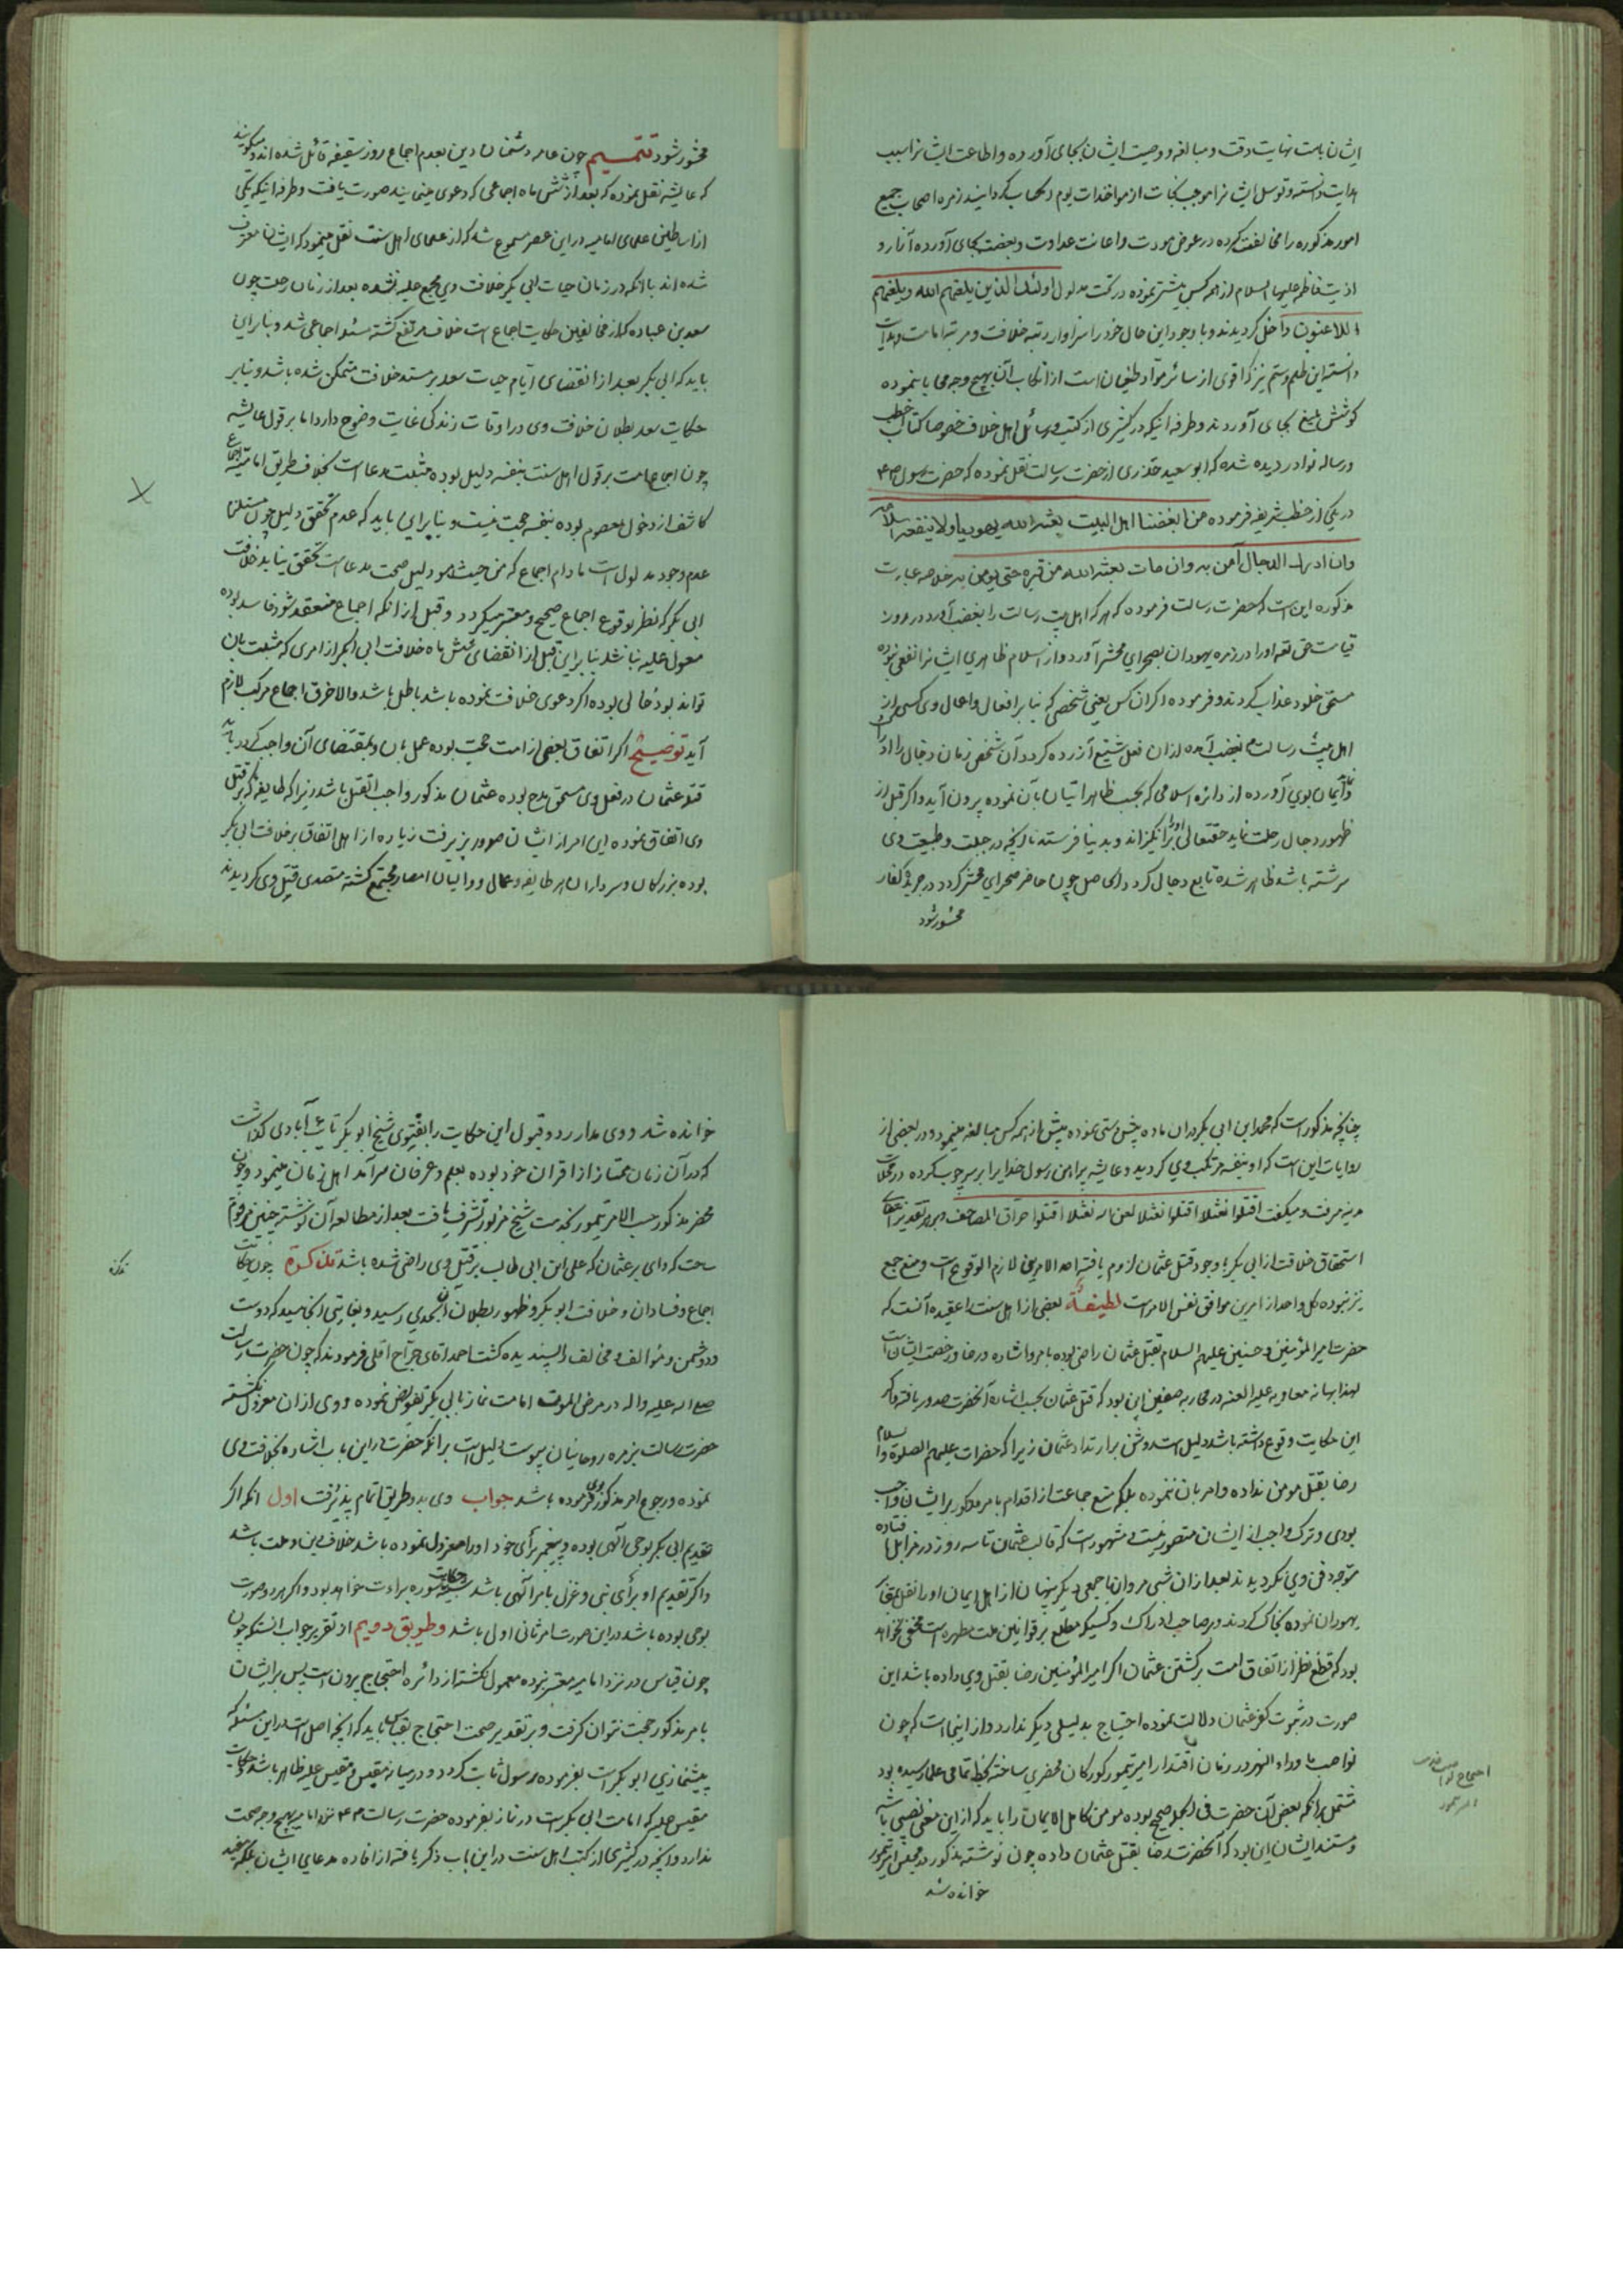 ایشان بامت نهایت دقت و مبالغه و وصیت ایشان بجای آورده و اطاعت ایشانرا سبب
هدایت دانسته و توسل ایشانرا موجب نجات از مواخذات یوم الحساب گردانیدند زمره اصحاب جمیع
امور مذکوره را مخالفت کرده در عوض مودت و اعانت عداوت و بغضت بجای آورده آزار و
اذیت فاطمه علیها السلام از همه کس بیشتر نموده در تحت مدلول اولئک الذین یلعنهم الله و یلعنهم
اللاعنون داخل گردیدند و با وجود این حال خود را سزاوار رتبه خلافت و مرتبه امامت و هدایت
دانسته این ظلم و ستم نیز که اقوی از سائر مواد طغیان است از ارتکاب آن بهیچ وجه محابا ننموده
کوشش بلیغ بجای آوردند و طرفه اینکه در کثیری از کتب و رسائل اهل خلاف خصوصا کتاب خطب
و رساله نوادر دیده شده که ابو سعید خذری از حضرت رسالت نقل نموده که حضرت رسول ص م
در یکی از خطب شریفه فرموده من ابغضنا اهل البیت بعثه الله یهودیا و لا ینفعه اسلامه
وان ادرک الدجال آمن به وان مات بعثه الله من قبره حتی یومن به خلاصه عبارت
مذکوره این است که حضرت رسالت فرموده که هر که اهل بیت رسالت را بغضب آورد در روز
قیامت حق تعه او را در زمره یهودان بصحرای محشر آورد و از اسلام ظاهری ایشانرا نفعی نبوده
مستحق خلود عذاب گردند و فرموده اگر آن کس یعنی شخصی که بنا بر افعال و اعمال وی کسی از
اهل بیت رسالت بغضب آمده از آن فعل شنیع آزرده گردد آن شخص زمان دجال را ادراک
و ایمان بوی آورده از دائره اسلامی که بحسب ظاهر اتیان بآن نموده بیرون آید و اگر قبل از
ظهور دجال رحلت نماید حقتعالی او را برانگیزاند و بدنیا فرستد تا آنچه در جبلت و طبیعت وی
سرشته باشد ظاهر شده تابع دجال گردد الحاصل چون حاضر صحرای محشر گردد در جریده کفار
محشور شود
محشور شود تتمیم چون عامه دشمنان دین بعدم اجماع روز سقیفه قائل شده اند و میگویند
که عایشه نقل نموده که بعد از شش ماه اجماعی که دعوی مینمایند صورت یافت و طرفه اینکه یکی
از اساطین علمای امامیه در این عصر مسموع شد که از علمای اهل سنت نقل مینمود که ایشان معترف
شده اند بآنکه در زمان حیات ابی بکر خلافت وی مجمع علیه نشده بعد از زمان رحلت چون
سعد بن عباده که از مخالفین حکایت اجماع است خلاف مرتفع گشته مسئله اجماعی شد و بنابراین
باید که ابی بکر بعد از انقضای ایام حیات سعد بر مسند خلافت متمکن شده باشد و بنا بر
حکایت سعد بطلان خلافت وی در اوقات زندگی غایت وضوح دارد اما بر قول عایشه
چون اجماع امت بر قول اهل سنت بنفسه دلیل بوده مثبت مدعا است بخلاف طریق امامیه اجماع
کاشف از دخول معصوم بوده بنفسه حجت نیست و بنا براین باید که عدم تحقق دلیل چون مستلزم
عدم وجود مدلول است مادام اجماع که من حیث هو دلیل صحت مدعا است تحقق نیابد خلافت
ابی بکر که نظر بوقوع اجماع صحیح و معتبر میگردد و قبل از آنکه اجماع منعقد شود فاسد بوده
معول علیه نباشد بنابراین قبل از انقضای شش ماه خلافت ابی بکر از امری که مثبت بآن
تواند بود خالی بوده اگر دعوی خلافت نموده باشد باطل باشد و الا خرق اجماع مرکب لازم
آید توضیح اگر اتفاق بعضی از امت حجت بوده عمل بآن و بمقتضای آن واجب گردد باید
قتله عثمان در فعل وی مستحق مدح بوده عثمان مذکور واجب القتل باشد زیرا که طایفه که بر قتل
وی اتفاق نموده این امر از ایشان صدور پذیرفت زیاده از اهل اتفاق بر خلافت ابی بکر
بوده بزرگان و سرداران هر طایفه و عمال و والیان امصار مجتمع گشته متصدی قتل وی گردیدند
چنانچه مذکور است که محمد ابن ابی بکر در آن ماده چشم پوشی نموده بیش از همه کس مبالغه مینمود و در بعضی از
روایات این است که او بنفسه مرتکب وی گردید و عایشه پیراهن رسول خدا را بر سر چوب کرده در محلات
مدینه میرفت و میگفت اقتلوا نعثلا اقتلوا نعثلا لعن الله نعثلا اقتلوا حراق المصاحف و بر هر تقدیر
استحقاق خلافت از ابی بکر با وجود قتل عثمان لزوم یافته احد الامرین لازم الوقوع است و منع جمع
نیز نبوده کل واحد از امرین موافق نفس الامر است لطیفة بعضی از اهل سنت را عقیده آنست که
حضرت امیر المؤمنین و حسنین علیهم السلام بقتل عثمان راضی بوده بامر و اشاره و رضا و رخصت ایشان است
لهذا بهانه معاویه علیه العنه در محاربه صفین این بود که قتل عثمان بحسب اشاره آنحضرت صدور یافته و اگر
این حکایت وقوع داشته باشد دلیل است روشن بر ارتداد عثمان زیرا که حضرات علیهم الصلوة والسلام
رضا بقتل مومن نداده و امر بآن ننموده بلکه منع جماعت از اقدام بامر مذکور بر ایشان واجب
بودی و ترک واجب از ایشان متصور نیست و مشهور است که قالب عثمان تا سه روز در مزابل افتاده
متوجه دفن وی نگردیدند بعد از آن شبی مروان با جمعی دیگر پنهان از اهل ایمان او را نقل بمقابر
یهودان نموده بخاک کردند و بر صاحب ادراک و کسیکه مطلع بر قوانین ملت مطهره است مخفی نخواهد
بود که قطع نظر از اتفاق امت بر کشتن عثمان اگر امیر المؤمنین رضا بقتل وی داده باشد این
صورت در ثبوت کفر عثمان دلالت نموده احتیاج بدلیلی دیگر ندارد و از اینجا است که چون
نواصب ماوراء النهر در زمان اقتدار امیر تیمور کورکان محضری ساخته بخط تمامی علما رسیده بود
مشتمل بر آنکه بغض آن حضرت فی الجمله صحیح بوده مومن کامل الایمان را باید که از این معنی نصیبی باشد
و مستند ایشان این بود که آنحضرت رضا بقتل عثمان داده چون نوشته مذکور در مجلس امیر تیمور
خوانده شد
خوانده شد و وی مدار رد و قبول این حکایت را بفتوی شیخ ابو بکر تایب آبادی گذاشت
که در آن زمان ممتاز از اقران خود بوده بعلم و عرفان سرآمد اهل زمان مینمود و چون
محضر مذکور حسب الامر تیمور بخدمت شیخ مزبور تشرف یافت بعد از مطالعه آن نوشته چنین مرقوم
ساخت که وای بر عثمان که علی ابن ابی طالب بر قتل وی راضی شده باشد تذکرة چون حکایت
اجماع و فساد آن و خلافت ابو بکر و ظهور بطلان آن بحدی رسید و بغایتی انجامید که دوست
و دشمن و مؤالف و مخالف را پسندیده گشت احمد آقای جراح اقلی فرمودند که چون حضرت رسالت
صلی الله علیه واله در مرض الموت امامت نماز بابی بکر تفویض نموده و وی از آن معزول نگشته
حضرت رسالت بزمره روحانیان پیوست دلیل است بر آنکه حضرت در این باب اشاره بخلافت وی
نموده و رجوع امر مذکور بوی فرموده باشد جواب وی بدو طریق اتمام پذیرفت اول آنکه اگر
تقدیم ابی بکر بوحی الهی بوده و پیغمبر برأی خود او را معزول نموده باشد خلاف دین و ملت باشد
و اگر تقدیم او برأی نبی و عزل بامر الهی باشد شبیه بحکایت سوره براءت خواهد بود و اگر هر دو صورت
بوحی بوده باشد در این صورت امر ثانی اول باشد و طریق دویم از تقریر جواب آنستکه چون
چون قیاس در نزد امامیه معتبر نبوده معمول نگشته از دائره احتجاج بیرون است پس بر ایشان
بامر مذکور حجت نتوان گرفت و بر تقدیر صحت احتجاج بقیاس باید که آنچه اصل است در این مسئله که
پیشنمازی ابو بکر است بفرموده رسول ثابت گردد و در میانه مقیس و مقیس علیه ظاهر باشد و حکایت
مقیس علیه که امامت ابی بکر است در نماز بفرموده حضرت رسالت ص م نزد امامیه بهیچ وجه صحت
ندارد و آنچه در کثیری از کتب اهل سنت در این باب ذکر یافته از افاده مدعای ایشان بلکه مفید